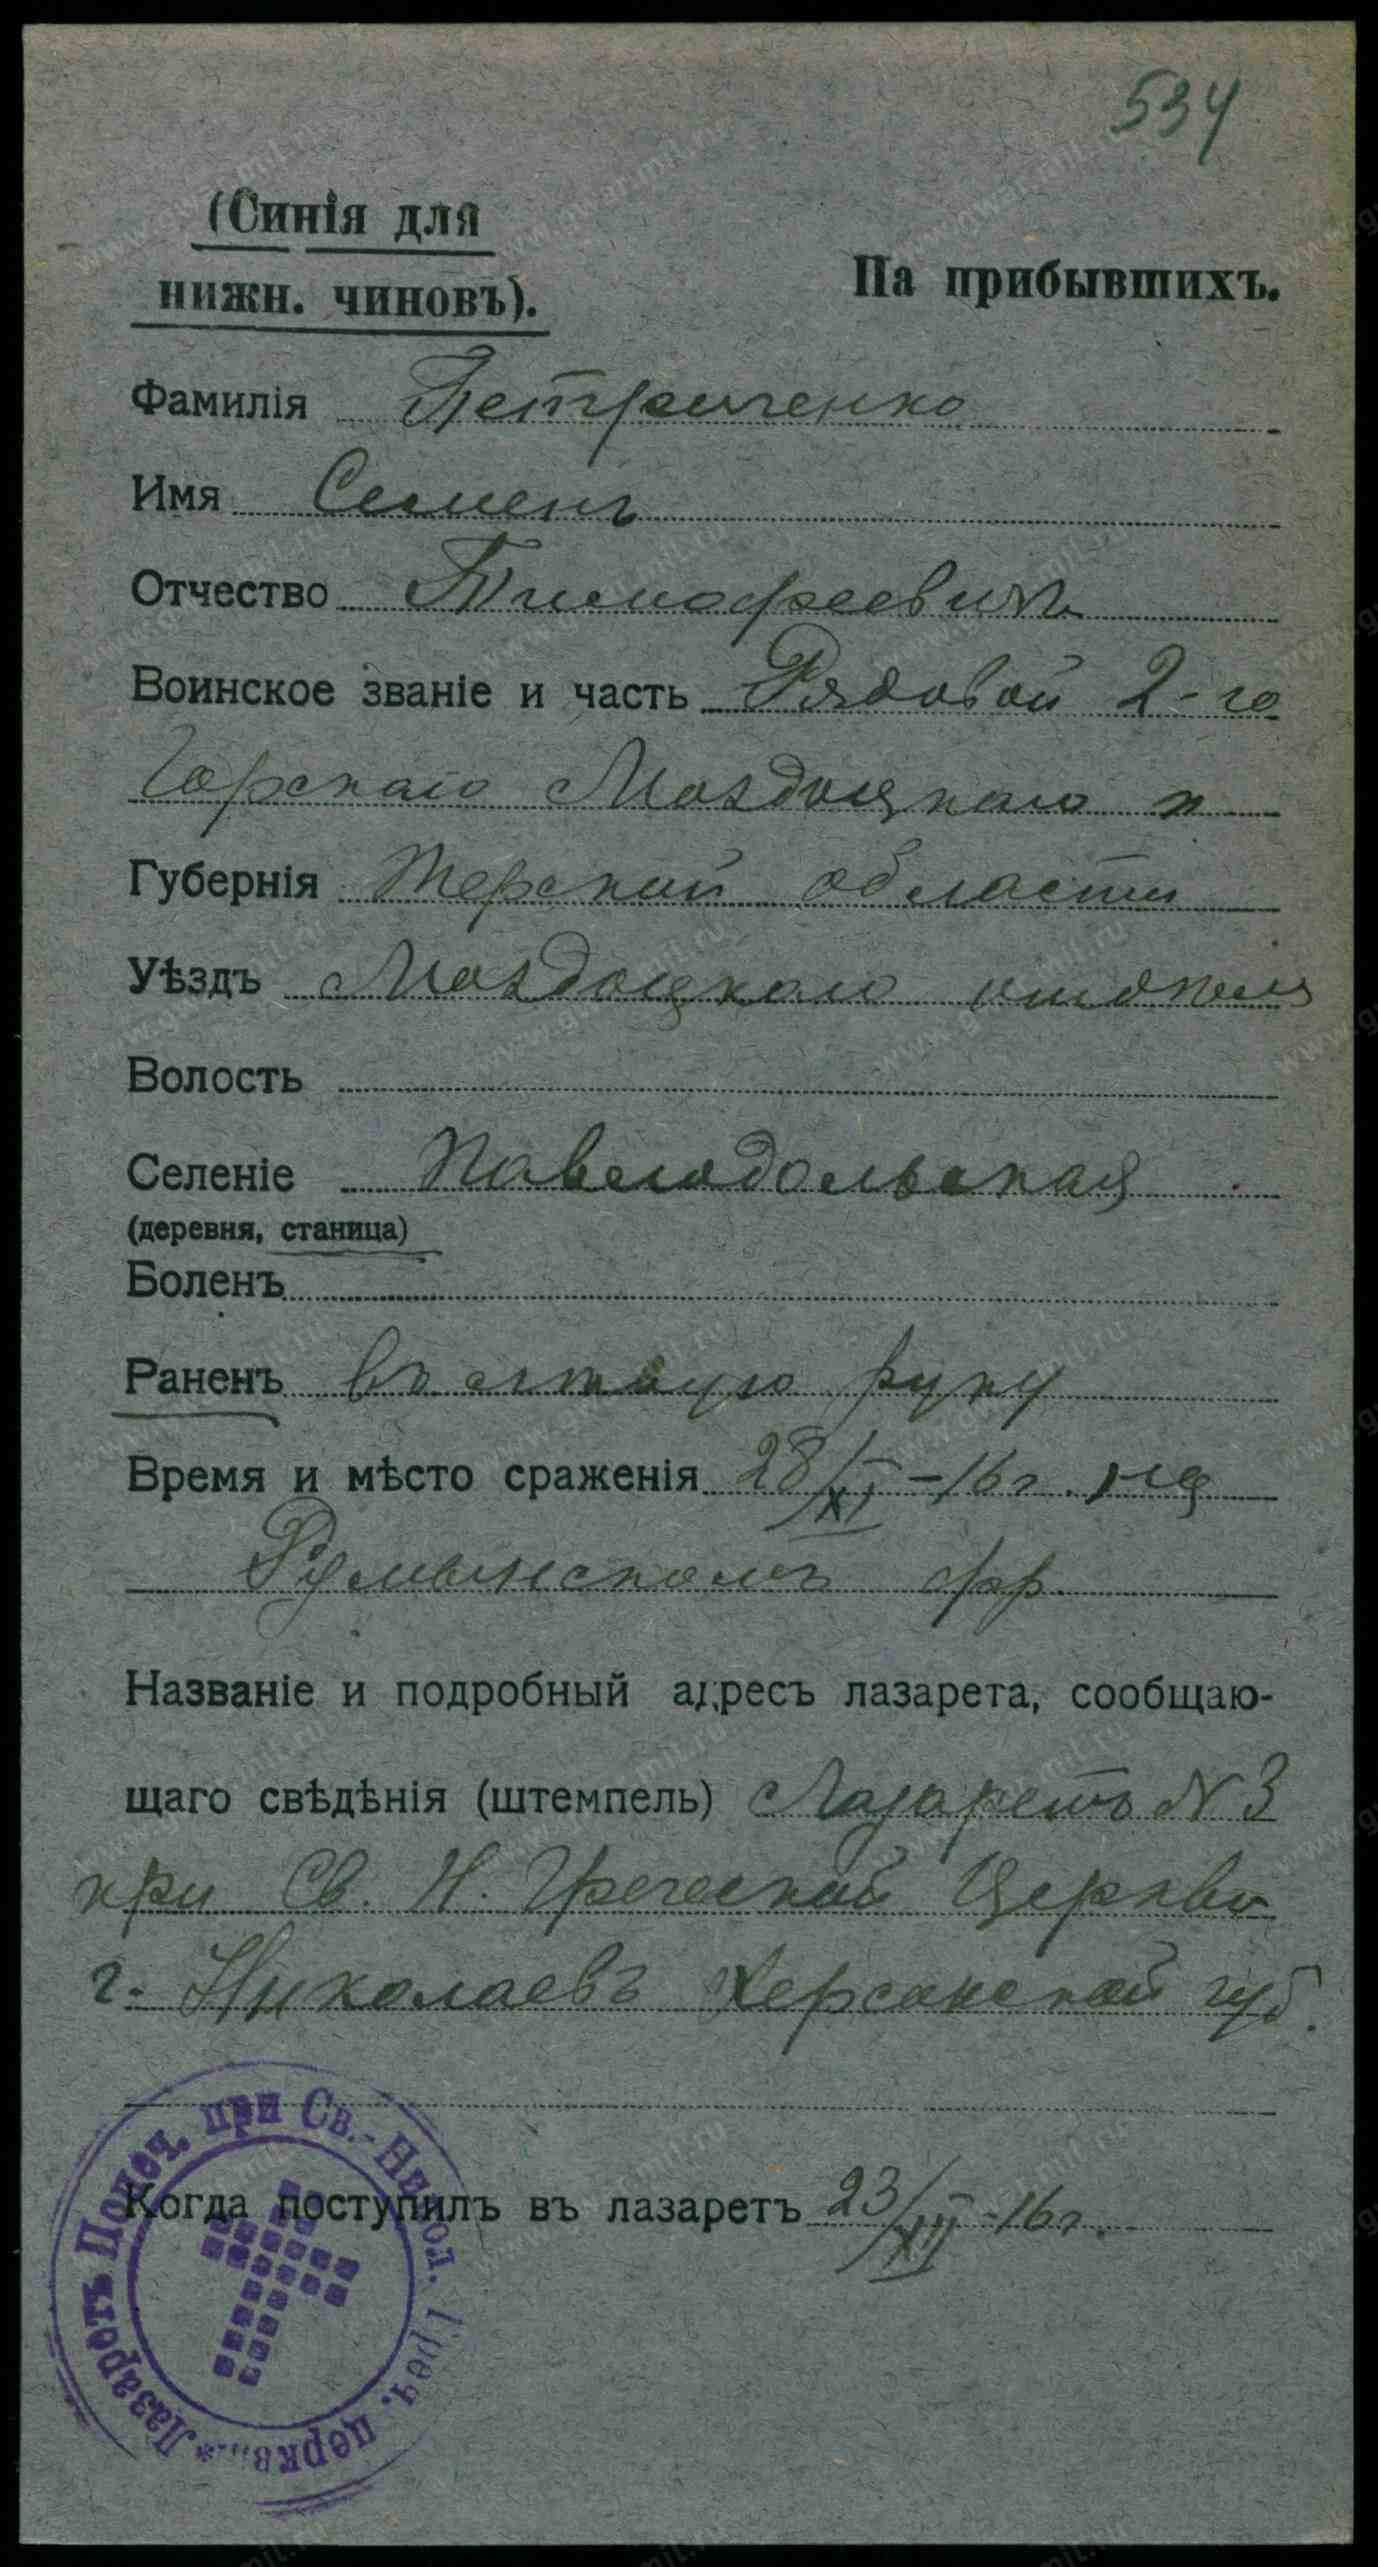 534
(Синія для
нижн. чиновъ).
На прибывшихъ.
Фамилія Петриченко
Имя Семенъ
Отчество Тимофеевичъ
Воинское званіе и часть Рядовой 2-го
Горскаго Моздоцкаго п
Губернія Терской области
Уѣздъ Моздоцкаго
Волость
Селеніе Павлодольская
(деревня, станица)
Боленъ
Раненъ въ руку
Время и мѣсто сраженія 28/XI-16 г. на
Румынскомъ фр.
Названіе и подробный адресъ лазарета, сообщаю-
щаго свѣдѣнія (штемпель) Лазаретъ N 3
при Св. Н. Греческой Церкви
г. Николаевъ Херсонской губ.
Когда поступилъ въ лазаретъ 23/XII-16 г.
Лазаретъ Попеч. при Св.-Никол. Греч. церкв.